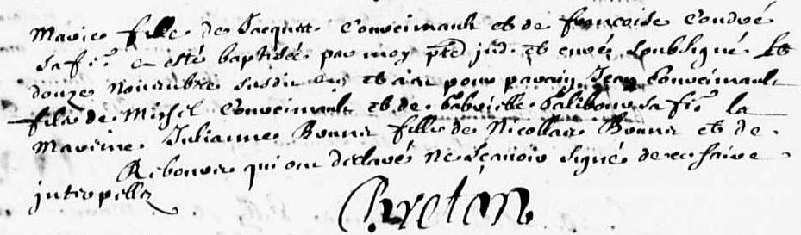 Marie fille de Jacques Convcinault et de francoise Condré
sa fe a esté baptisée par moy ptre et curé soubsigné le
douze novembre susdit an et aiant pour parain Jean Convcinault
fils de Michel Convcinault et de sa fe la
Mareine Julianne Bonnu fille de Nicollas Bonnu et de
Rebours qui ont declarés ne scavoir signé de ce faire
interpellez
Breton